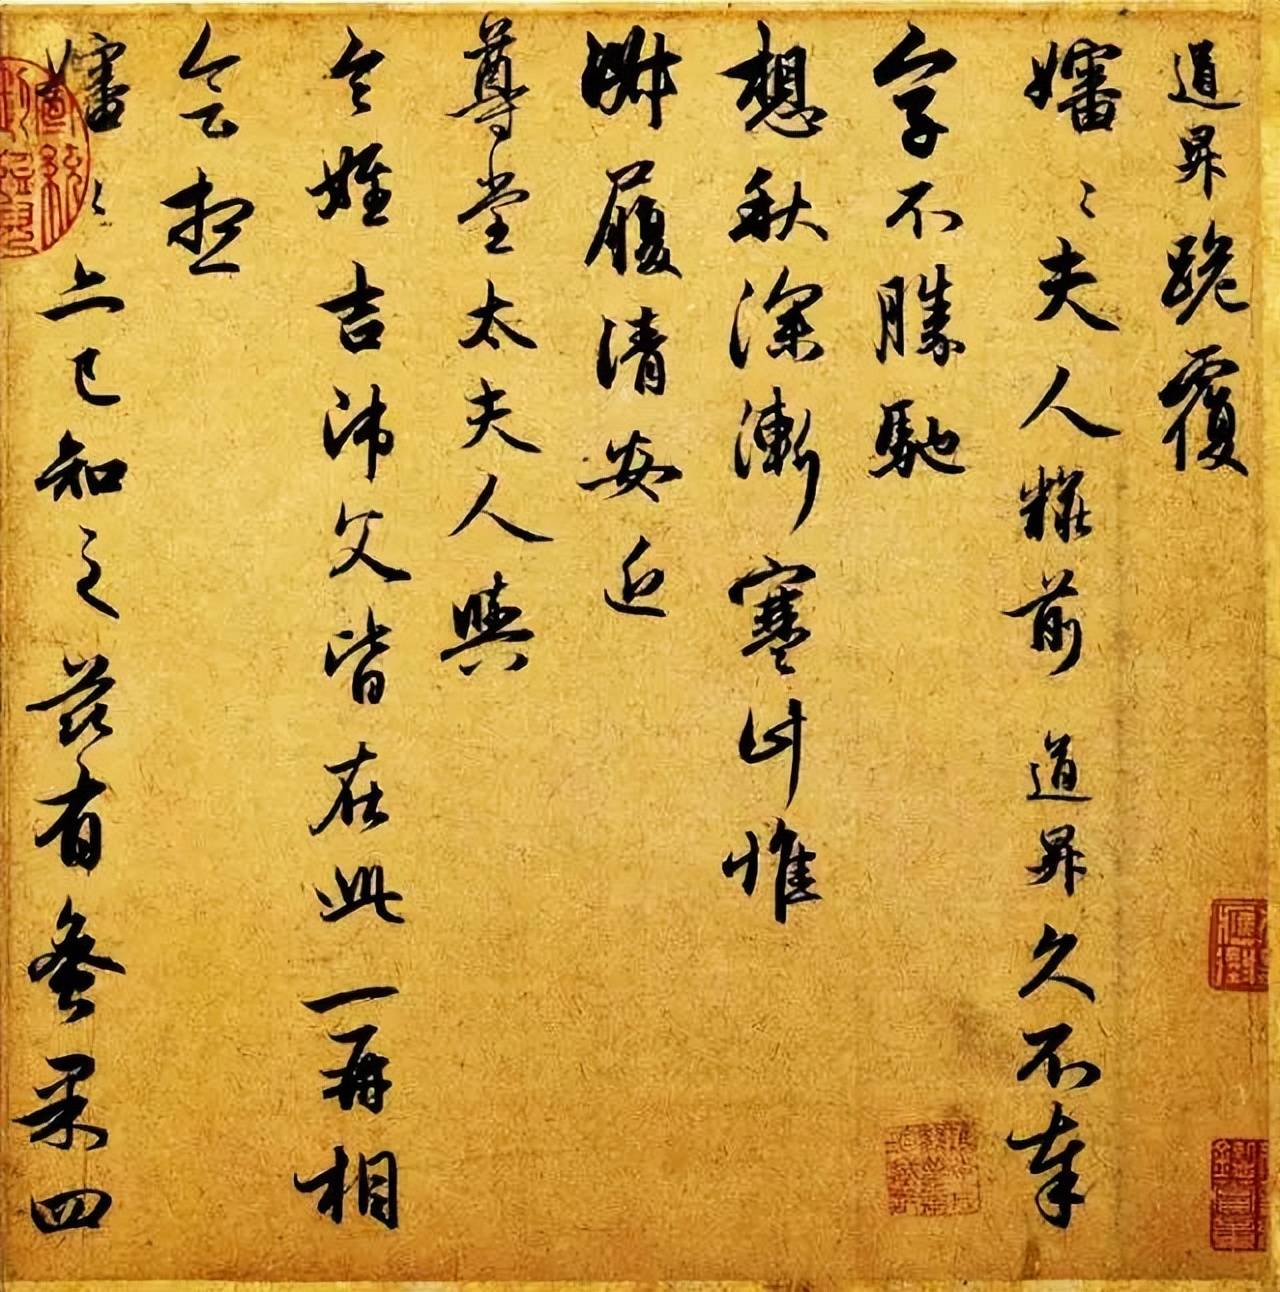 道昇跪覆
嬸〻夫人糚前 道昇久不奉
字不勝馳
想秋深漸寒計惟
淑履清安近
尊堂太夫人與
令姪吉師父皆在此一再相
會想
嬸〻亦已知之茲有蜜果四